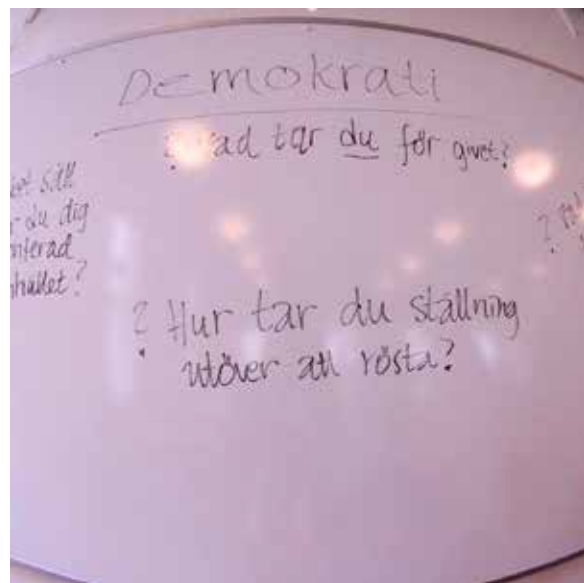 Demokrati
? Vad tar du för givet?
säll
du dig
? Hur tar du ställning
utöver att rösta?